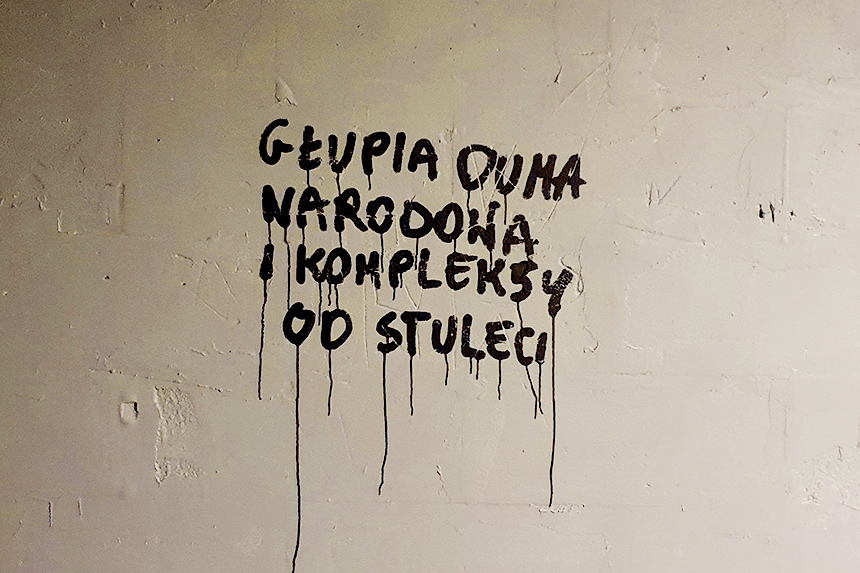 GŁUPIA DUMA
NARODOWA
I KOMPLEKSY
OD STULECI